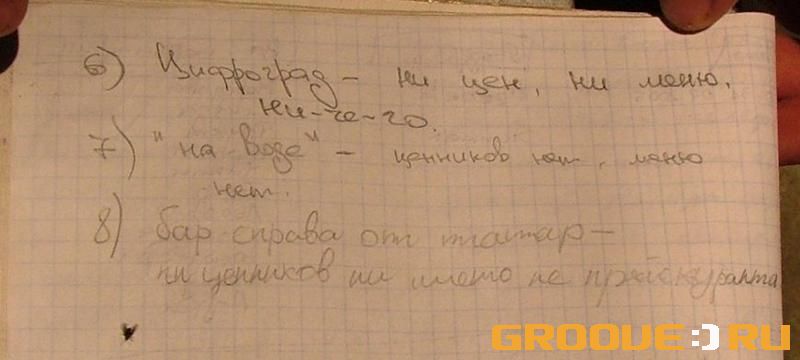 6) Цифроград – ни цен, ни меню,
ни-че-го.
7) "на воде" – ценников нет, меню
нет.
8) бар справа от татар –
ни ценников ни меню не прейскуранта
GROOVE:)RU